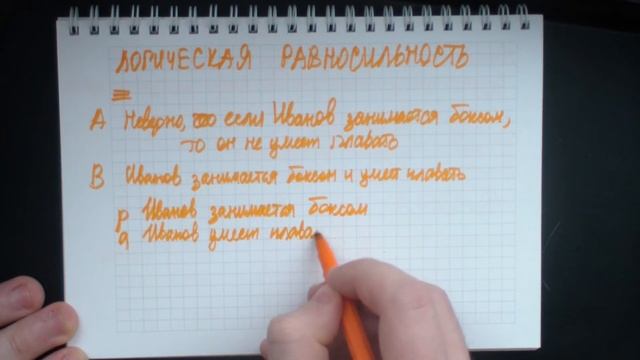 ЛОГИЧЕСКАЯ РАВНОСИЛЬНОСТЬ
≡
A Неверно, что если Иванов занимается боксом,
то он не умеет плавать
B Иванов занимается боксом и умеет плавать
p Иванов занимается боксом
q Иванов умеет плава